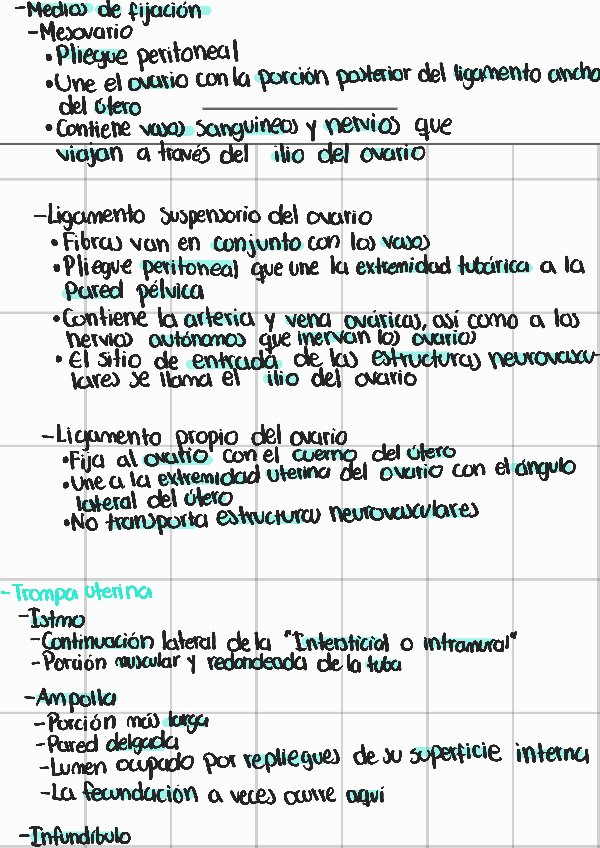 -Medios de fijación
-Mesovario
•Pliegue peritoneal
•Une el ovario con la porción posterior del ligamento ancho
del útero
•Contiene vasos sanguineos y nervios que
viajan a través del ilio del ovario
-Ligamento suspensorio del ovario
•Fibras van en conjunto con los vasos
•Pliegue peritoneal que une la extremidad tubárica a la
Pared pélvica
•Contiene la arteria y vena ováricas, así como a los
nervios autónomos que inervan los ovarios
•El sitio de entrada de las estructuras neurovascu-
lares se llama el ilio del ovario
-Ligamento propio del ovario
•Fija al ovario con el cuerno del útero
•Une a la extremidad uterina del ovario con el ángulo
lateral del útero
•No transporta estructuras neurovasculares
-Trompa uterina
-Istmo
-Continuación lateral de la "Intersticial o intramural"
-Porción muscular y redondeada de la tuba
-Ampolla
-Porción más larga
-Pared delgada
-Lumen ocupado por repliegues de su superficie interna
-La fecundación a veces ocurre aquí
-Infundíbulo